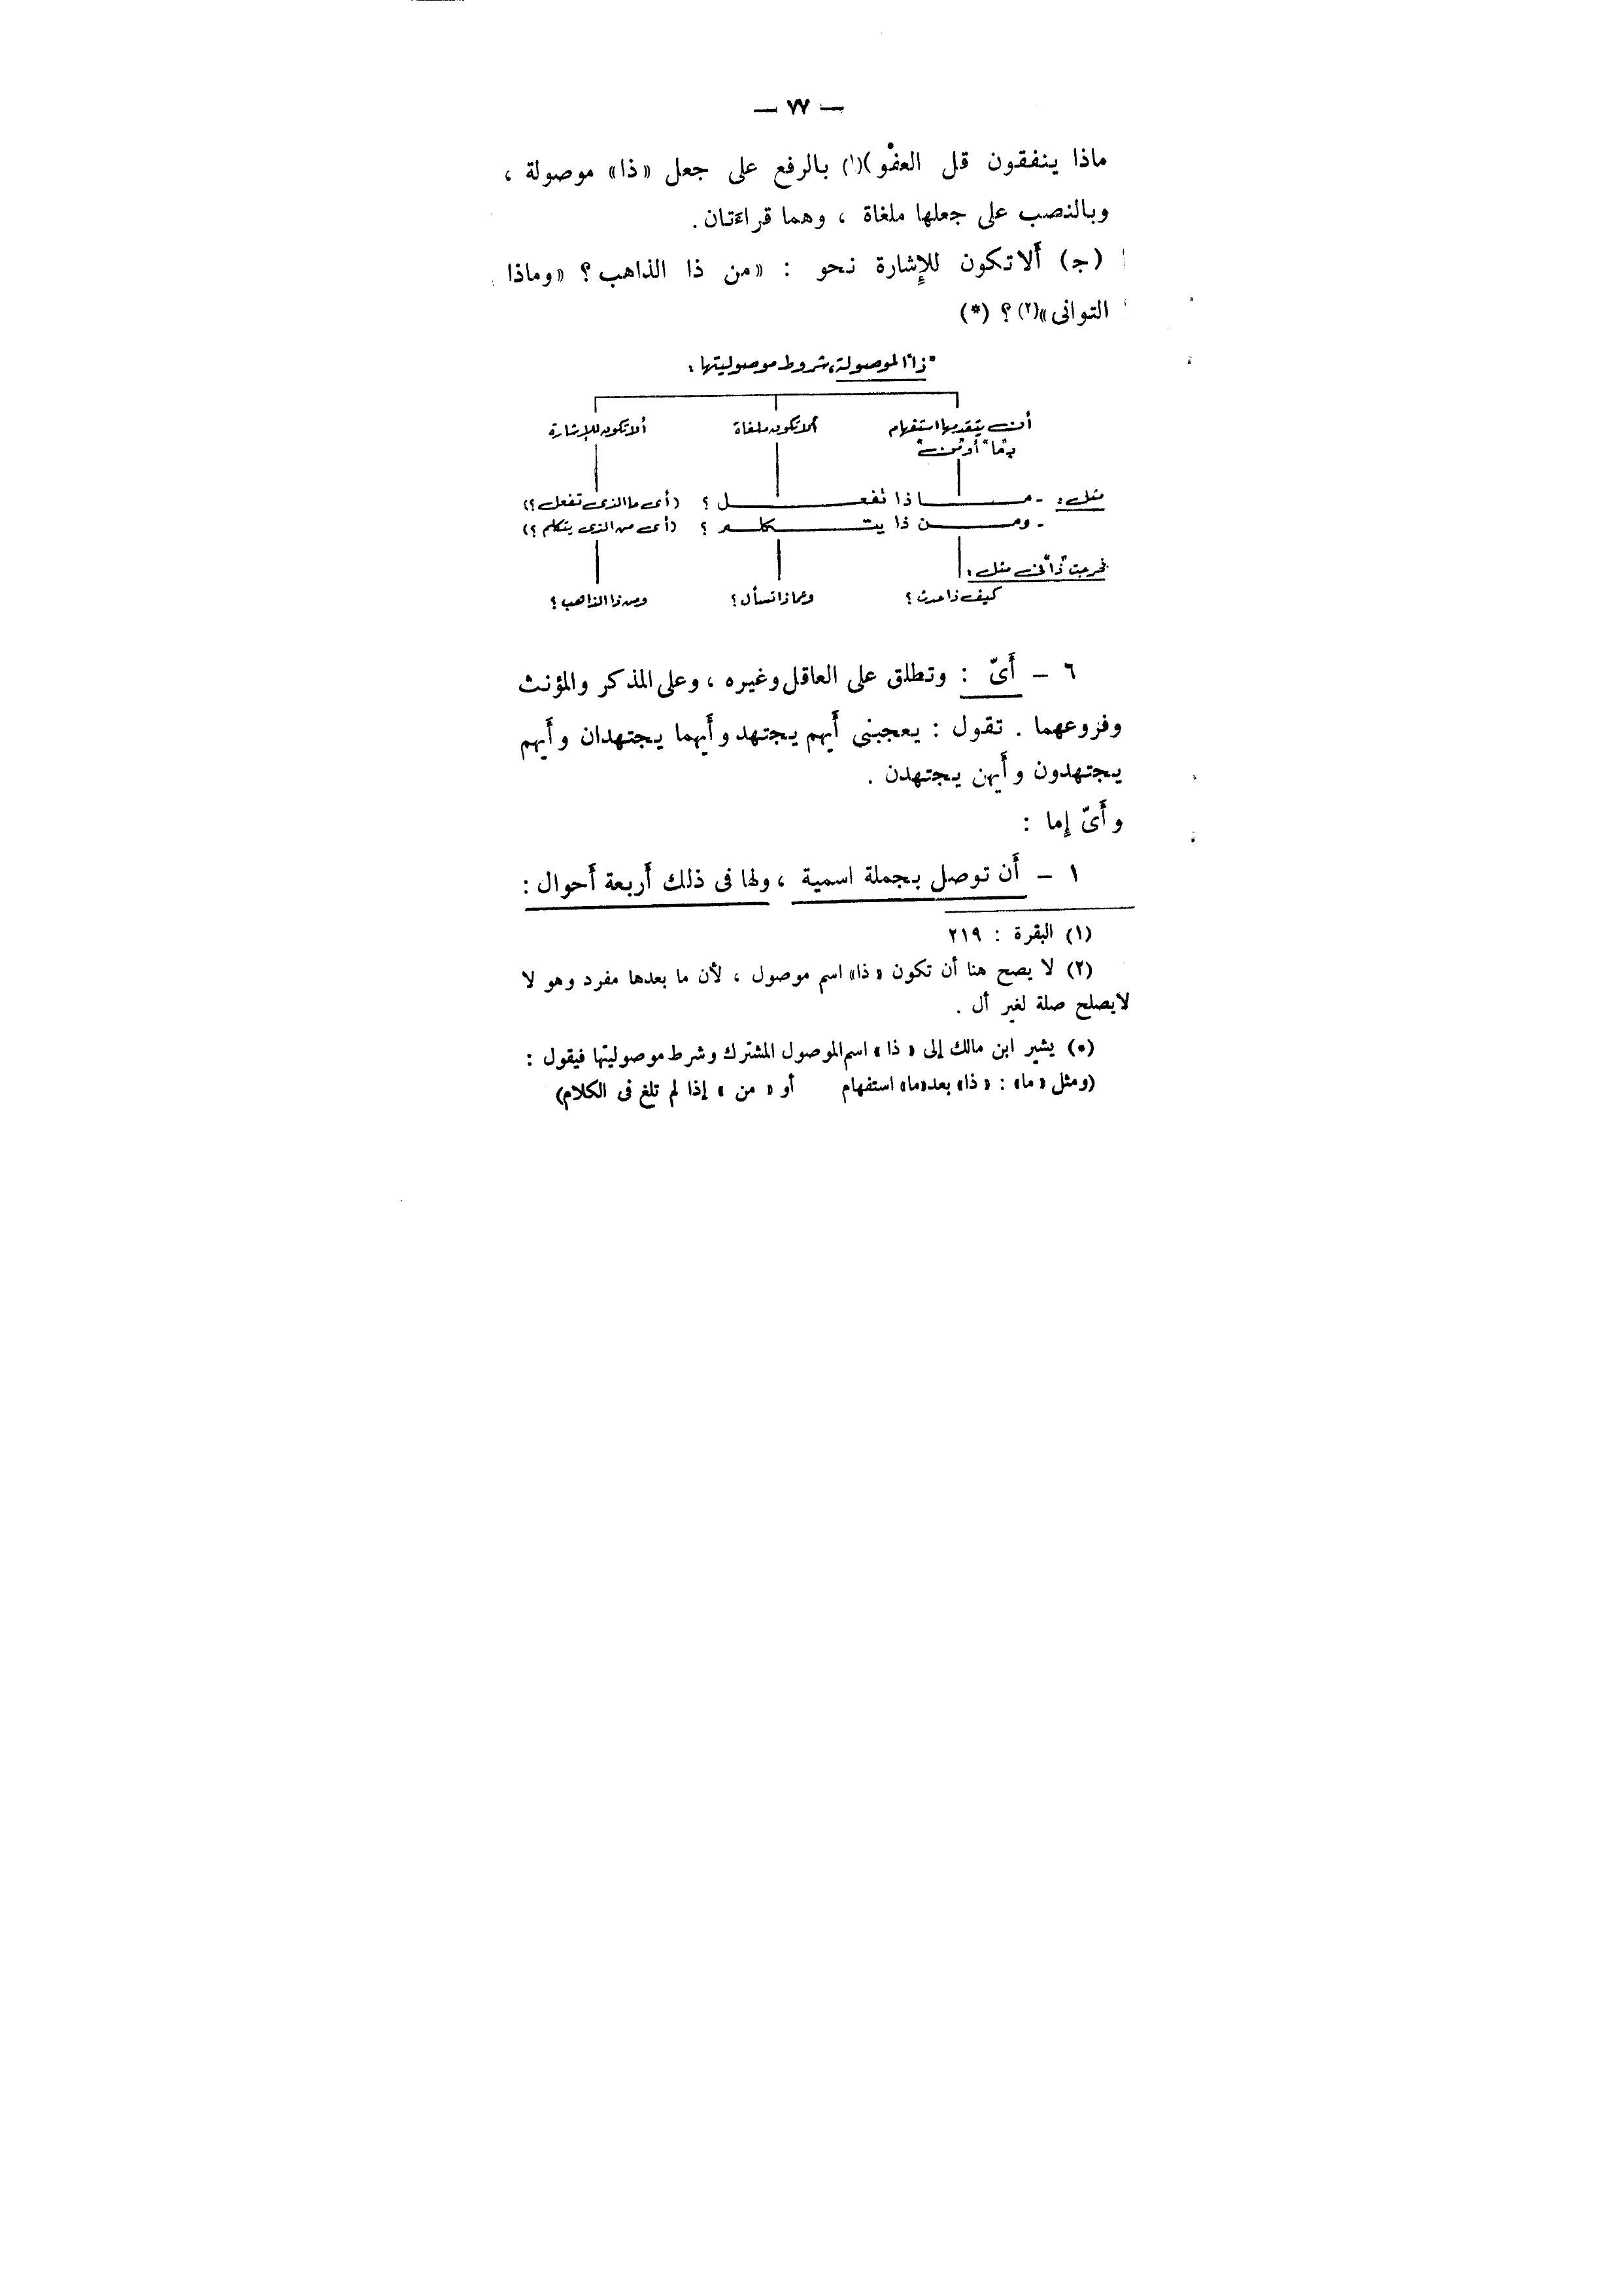 — ٧٧ —
ماذا ينفقون قل العفو)(١) بالرفع على جعل «ذا» موصولة ،
وبالنصب على جعلها ملغاة ، وهما قراءتان.
(ج) ألا تكون للإشارة نحو : «من ذا الذاهب ؟ «وماذا
التوانى»(٢) ؟ (*)
"ذا" الموصولة، شروط موصوليتها :
أن يتقدمها استفهام ألا تكون ملغاة ألا تكون للإشارة
بـ"ما" أو "من"
مثل : - مـــاذا تفعـــل ؟ (أى ما الذى تفعل ؟)
- ومـــن ذا يتـــكلـــم ؟ (أى من الذى يتكلم ؟)
فخرجت "ذا" فى مثل :
كيف ذا حدث ؟ وعماذا تسأل ؟ ومن ذا الذاهب ؟
٦ – أَىّ : وتطلق على العاقل وغيره ، وعلى المذكر والمؤنث
وفروعهما . تقول : يعجبنى أَيهم يجتهد وأَيهما يجتهدان وأَيهم
يجتهدون وأَيهن يجتهدن .
وأَىّ إما :
١ – أَن توصل بجملة اسمية ، ولها فى ذلك أَربعة أَحوال :
(١) البقرة : ٢١٩
(٢) لا يصح هنا أن تكون «ذا» اسم موصول ، لأن ما بعدها مفرد وهو لا
لايصلح صلة لغير أل .
(*) يشير ابن مالك إلى «ذا» اسم الموصول المشترك وشرط موصوليتها فيقول :
(ومثل «ما» : «ذا» بعد «ما» استفهام أو «من» إذا لم تلغ فى الكلام)